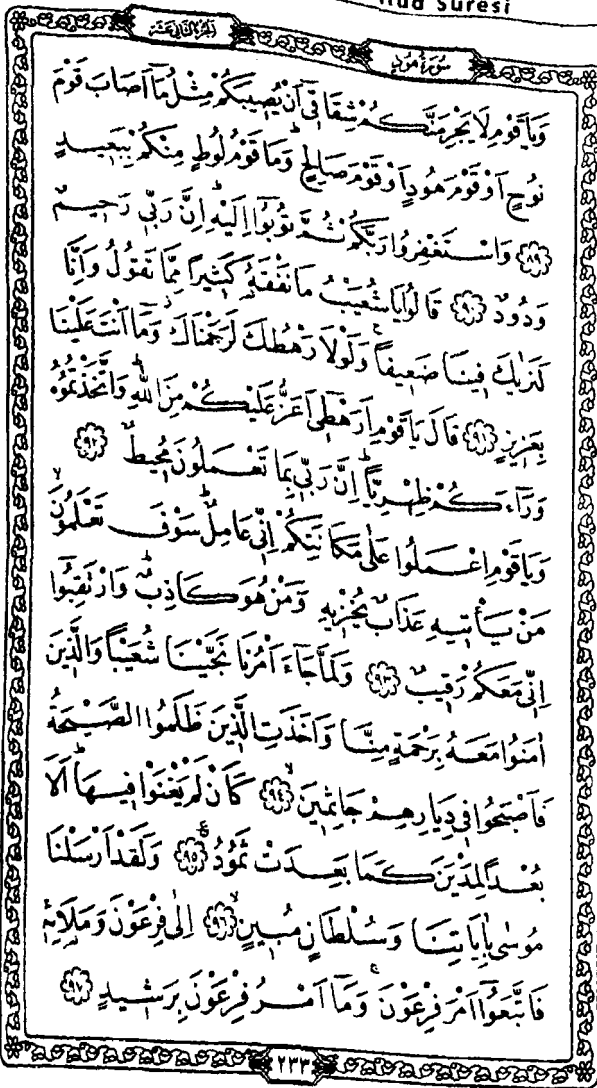 Hud Suresi
الجزء الثاني عشر
سورة هود
وَيَا قَوْمِ لَا يَجْرِمَنَّكُمْ شِقَاقٖٓي اَنْ يُصٖيبَكُمْ مِثْلُ مَٓا اَصَابَ قَوْمَ
نُوحٍ اَوْ قَوْمَ هُودٍ اَوْ قَوْمَ صَالِحٍؕ وَمَا قَوْمُ لُوطٍ مِنْكُمْ بِبَعٖيدٍ
﴿٨٩﴾ وَاسْتَغْفِرُوا رَبَّكُمْ ثُمَّ تُوبُٓوا اِلَيْهِؕ اِنَّ رَبّٖي رَحٖيمٌ
وَدُودٌ ﴿٩٠﴾ قَالُوا يَا شُعَيْبُ مَا نَفْقَهُ كَثٖيرًا مِمَّا تَقُولُ وَاِنَّا
لَنَرٰيكَ فٖينَا ضَعٖيفًاۚ وَلَوْلَا رَهْطُكَ لَرَجَمْنَاكَؗ وَمَٓا اَنْتَ عَلَيْنَا
بِعَزٖيزٍ ﴿٩١﴾ قَالَ يَا قَوْمِ اَرَهْطٖٓي اَعَزُّ عَلَيْكُمْ مِنَ اللّٰهِؕ وَاتَّخَذْتُمُوهُ
وَرَٓاءَكُمْ ظِهْرِيًّاؕ اِنَّ رَبّٖي بِمَا تَعْمَلُونَ مُحٖيطٌ ﴿٩٢﴾
وَيَا قَوْمِ اعْمَلُوا عَلٰى مَكَانَتِكُمْ اِنّٖي عَامِلٌؕ سَوْفَ تَعْلَمُونَۙ
مَنْ يَأْتٖيهِ عَذَابٌ يُخْزٖيهِ وَمَنْ هُوَ كَاذِبٌؕ وَارْتَقِبُٓوا
اِنّٖي مَعَكُمْ رَقٖيبٌ ﴿٩٣﴾ وَلَمَّا جَٓاءَ اَمْرُنَا نَجَّيْنَا شُعَيْبًا وَالَّذٖينَ
اٰمَنُوا مَعَهُ بِرَحْمَةٍ مِنَّا وَاَخَذَتِ الَّذٖينَ ظَلَمُوا الصَّيْحَةُ
فَاَصْبَحُوا فٖي دِيَارِهِمْ جَاثِمٖينَۙ ﴿٩٤﴾ كَاَنْ لَمْ يَغْنَوْا فٖيهَاؕ اَلَا
بُعْدًا لِمَدْيَنَ كَمَا بَعِدَتْ ثَمُودُ ﴿٩٥﴾ وَلَقَدْ اَرْسَلْنَا
مُوسٰى بِاٰيَاتِنَا وَسُلْطَانٍ مُبٖينٍۙ ﴿٩٦﴾ اِلٰى فِرْعَوْنَ وَمَلَا۬ئِهٖ
فَاتَّبَعُٓوا اَمْرَ فِرْعَوْنَۚ وَمَٓا اَمْرُ فِرْعَوْنَ بِرَشٖيدٍ ﴿٩٧﴾
٢٣٣